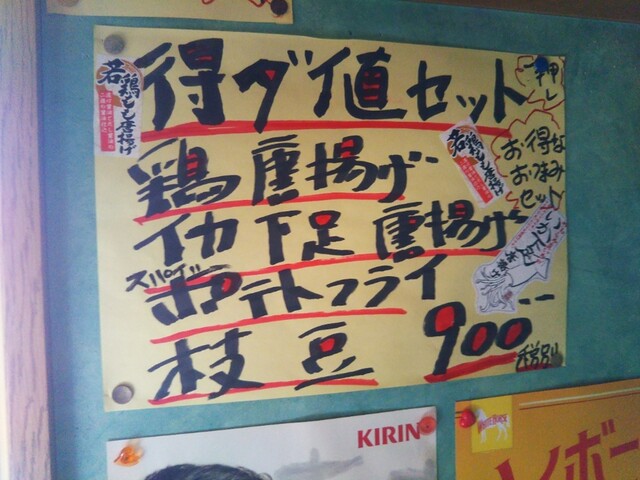 得ダ値セット
押し
お得な
おつまみ
セット
若鶏もも唐揚げ
若鶏もも唐揚げ
鶏唐揚げ
イカ下足唐揚げ
スパイシー
ポテトフライ
枝豆 900
税別
KIRIN